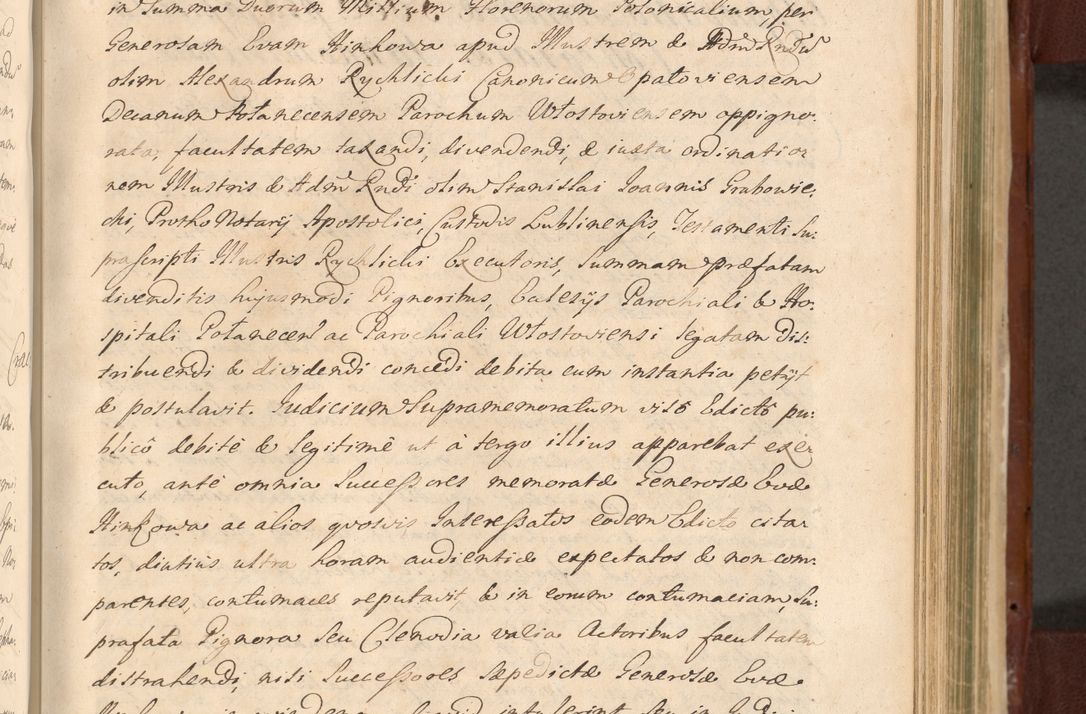 in Summa Duorum Millium Florenorum Polonicalium, per
Generosam Evam Hinkowa apud Illustrem & Adm Rndũ
olim Alexandrum Rychlicki Canonicum Opatoviensem
Decanum Połanecensem Parochum Włostoviensem oppigno-
rata, facultatem taxandi, divendendi, & iuxta ordinatio-
nem Illustris & Adm Rndi olim Stanislai Ioannis Grabowie-
cki, Protho Notarij Apostolici, Custodis Lublinensis, Testamenti Su-
prascripti Illustris Rychlicki Executoris, Summam præfatam
divenditis hujusmodi Pignoribus, Eclesijs Parochiali & Ho-
spitali Połanecen ac Parochiali Włostoviensi legatam dis-
tribuendi & dividendi concedi debita cum instantia petijt
& postulavit. Iudicium Supramemoratum visô Edictô pu-
blicô debitè & legitimê ut à tergo illius apparebat exe-
cuto, antè omnia Successores memoratæ Generosæ Evæ
Hinkowa ac alios qvosvis Interessatos eodem Edicto cita-
tos, diutius ultra horam audientiæ expectatos & non com-
parentes, contumaces reputavit, & in eorum contumaciam, su-
prafata Pignora seu Clenodia valia Actoribus facultatem
distrahendi, nisi Successores sæpedictæ Generosæ Evæ